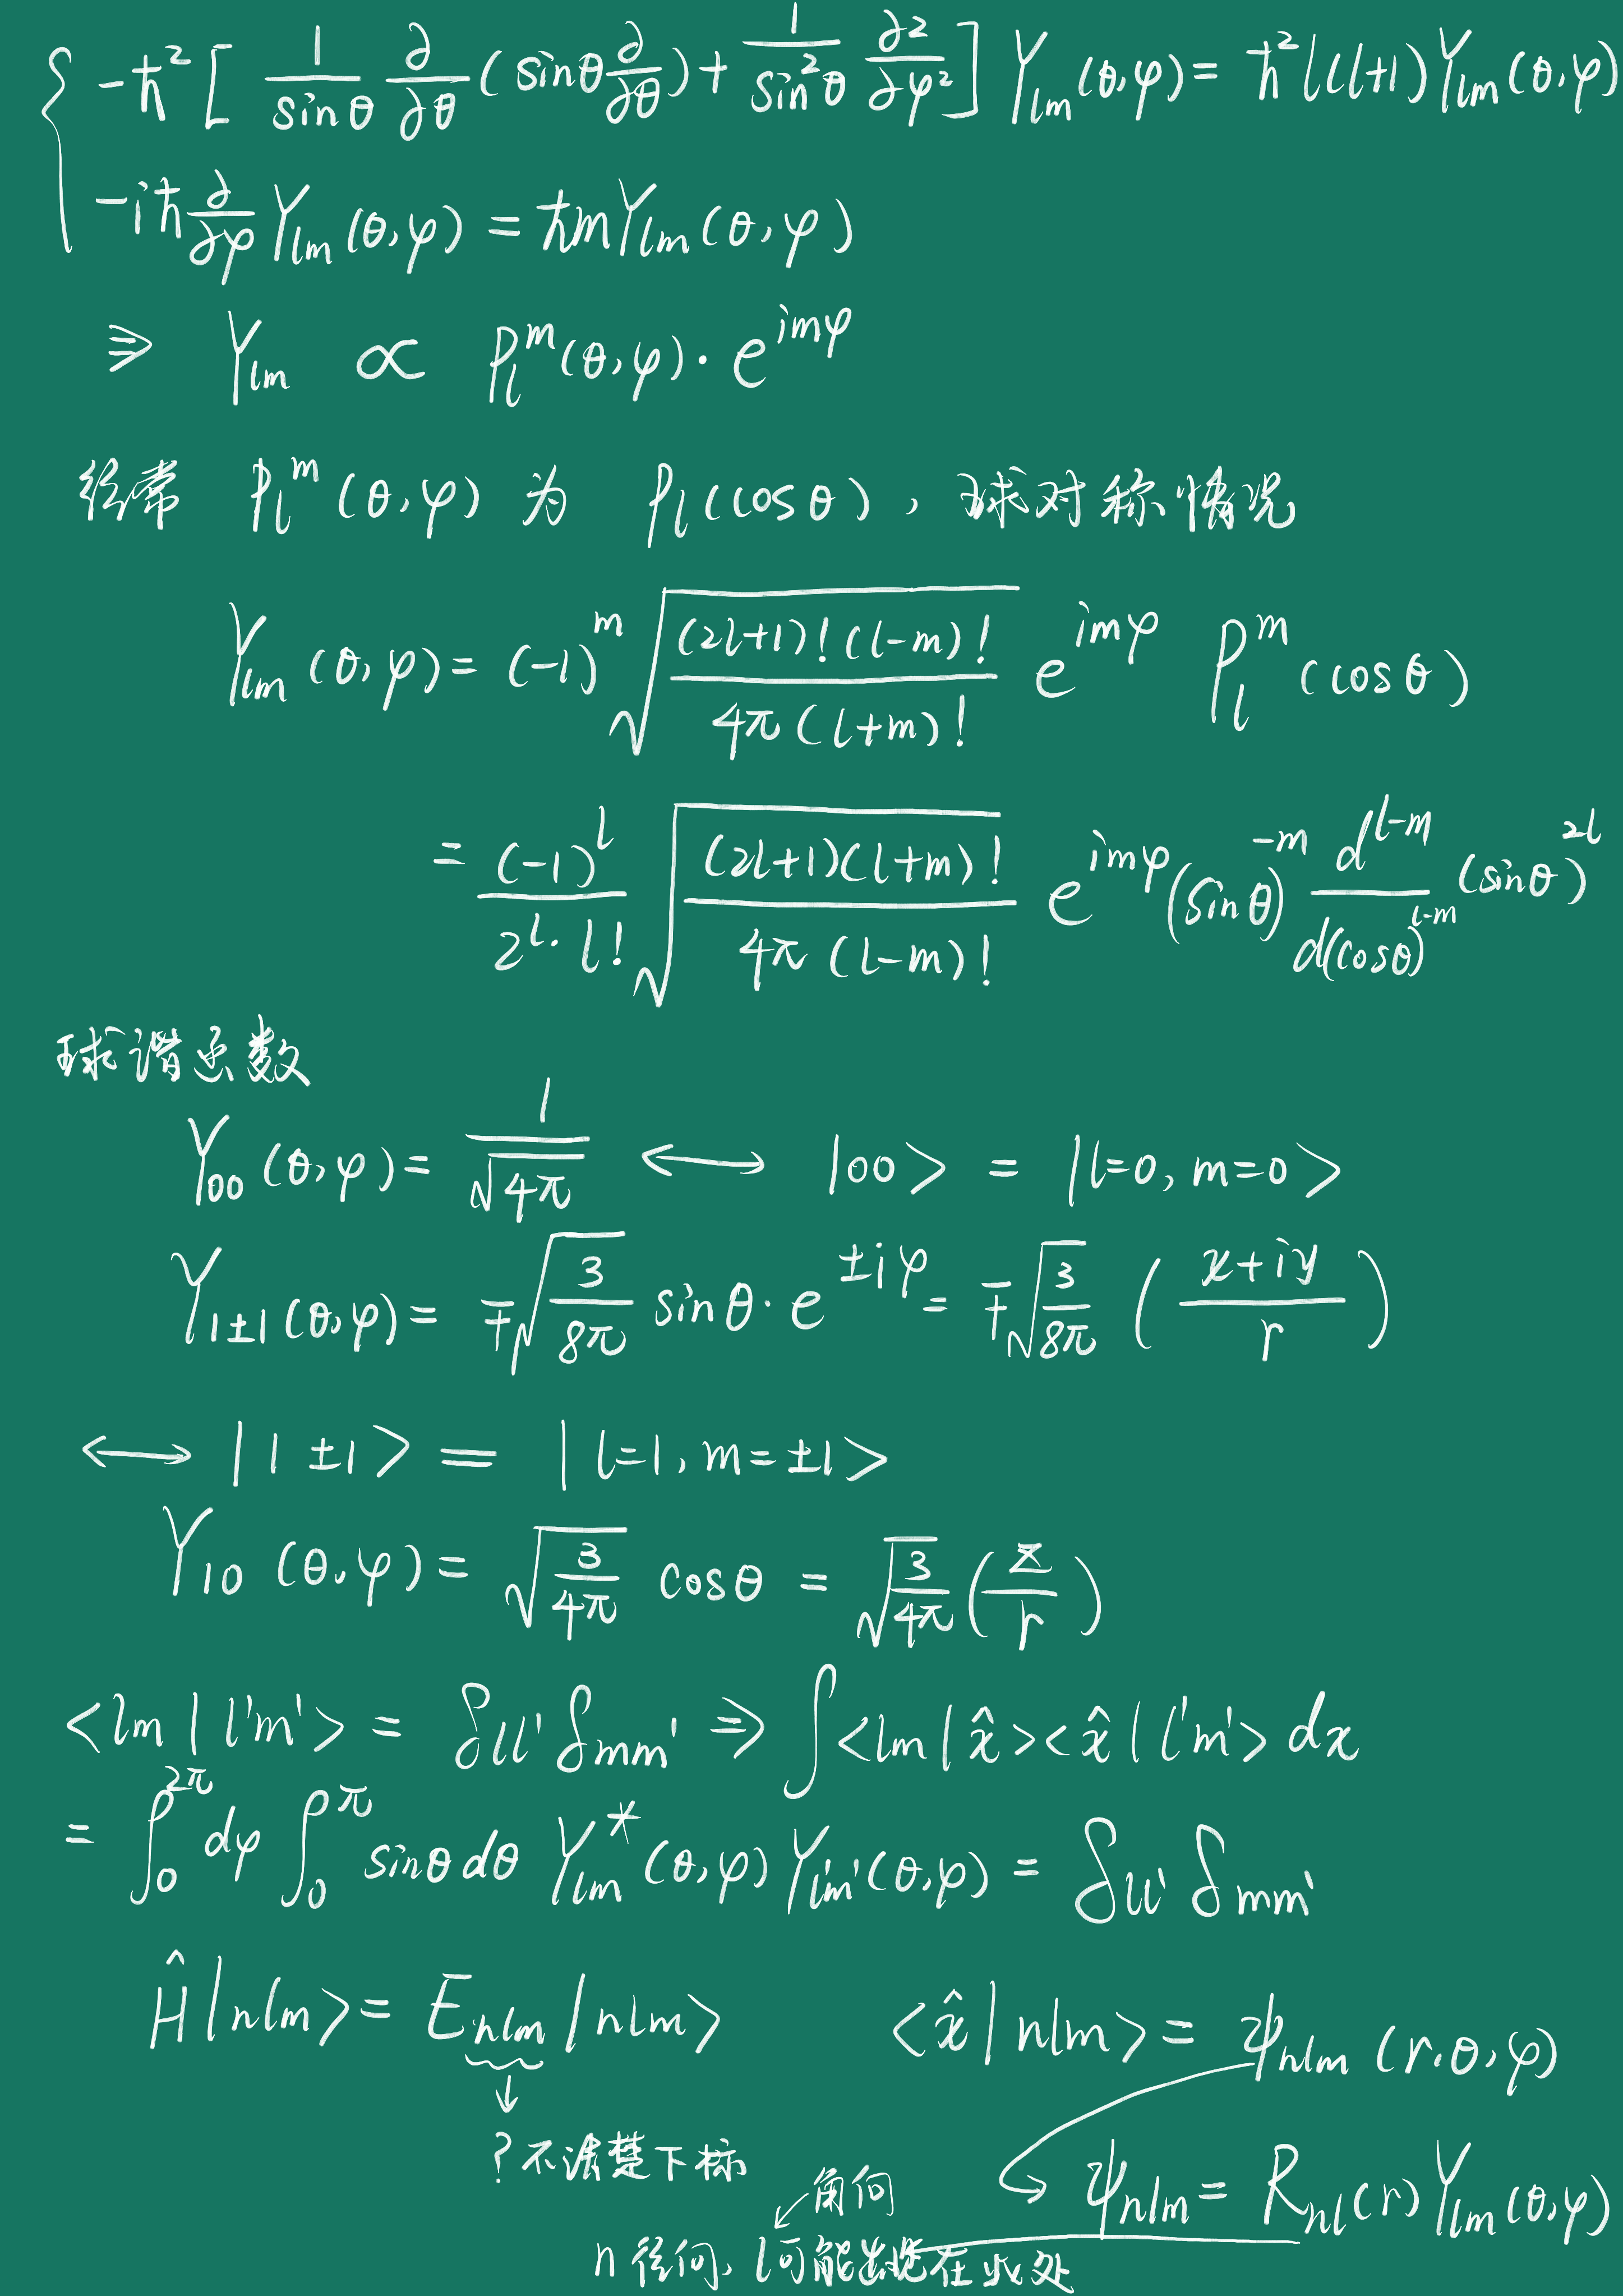 { -ħ² [ 1/sinθ ∂/∂θ (sinθ ∂/∂θ) + 1/sin²θ ∂²/∂φ² ] Y_lm(θ,φ) = ħ² l(l+1) Y_lm(θ,φ)
-iħ ∂/∂φ Y_lm(θ,φ) = ħm Y_lm(θ,φ)
⇒ Y_lm ∝ P_l^m(θ,φ)·e^{imφ}
经常 P_l^m(θ,φ) 为 P_l(cosθ), 球对称情况
Y_lm(θ,φ) = (-1)^m √((2l+1)!(l-m)! / 4π(l+m)!) e^{imφ} P_l^m(cosθ)
= (-1)^l / 2^l·l! √((2l+1)(l+m)! / 4π(l-m)!) e^{imφ} (sinθ)^{-m} d^{l-m}/d(cosθ)^{l-m} (sinθ)^{2l}
球谐函数
Y_00(θ,φ) = 1/√4π ⟷ |00> = |l=0, m=0>
Y_1±1(θ,φ) = ∓√(3/8π) sinθ·e^{±iφ} = ∓√(3/8π) ( x+iy / r )
⟷ |1 ±1> = |l=1, m=±1>
Y_10(θ,φ) = √(3/4π) cosθ = √(3/4π) (z/r)
<lm|l'm'> = δ_ll' δ_mm' ⇒ ∫<lm|x̂><x̂|l'm'> dx
= ∫_0^{2π} dφ ∫_0^π sinθdθ Y_lm^*(θ,φ) Y_l'm'(θ,φ) = δ_ll' δ_mm'
Ĥ|nlm> = E_nlm|nlm> <x̂|nlm> = ψ_nlm(r,θ,φ)
↓
?不清楚下标
↙角向
ψ_nlm = R_nl(r) Y_lm(θ,φ)
n径向, l可能出现在此处